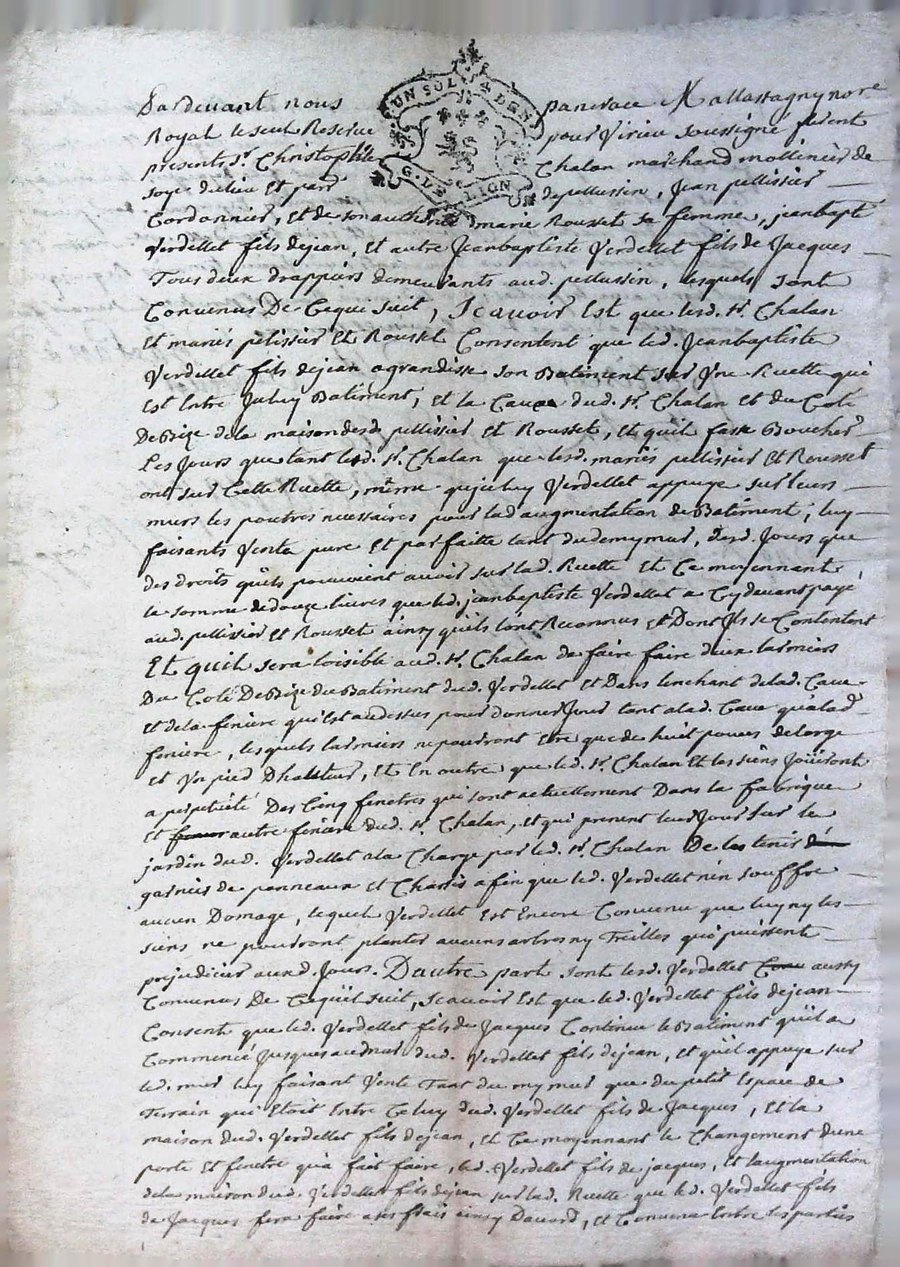 UN SOL 4 DEN
G. DE LION
Pardevant nous pancrace Mallassagny nore
Royal le seul Reserve pour Virieu soussigné furent
presents Sr. Christophle Chalan marchand mollineur de
soye dudieu Et par depellussin, Jean pellissier
Cordonnier, Et de son authorité marie Rousset sa femme, jeanbapte
Verdellet fils dejean, Et autre Jeanbaptiste Verdellet fils de Jacques
Tous deux drappiers demeurants aud. pellussin, lesquels sont
Convenus De Cequi suit, Scavoir Est que lesd. Sr. Chalan
Et mariés pelissier Et Rousset Consentent que led. Jeanbaptiste
Verdellet fils dejean agrandisse son Batiment sur Une Ruette qui
Est Entre Iceluy Batiment, Et la Cave dud. Sr. Chalan Et du Coté
DeBize dela maison desd. pellissier Et Rousset, Et quil fasse Boucher
Les Jours que tant led. Sr. Chalan que lesd. mariés pellissier Et Rousset
ont sur Cette Ruette, même quiceluy Verdellet appuye sur leurs
murs les poutres necessaires pour lad augmentation de Batiment, luy
faisants Vente pure Et parfaitte tant dudemymur, desd. Jours que
des droits qu'ils pouvoient avoir sur lad. Ruette Et Ce moyennant
la somme dedouze livres que led. jeanbaptiste Verdellet a Cydevant payé
aud. pellissier Et Rousset ainsy quils lont Reconnus Et Dont Ils se Contentent
Et quil sera loisible aud. Sr. Chalan de faire faire deux larmiers
Du Coté DeBize du Batiment dud. Verdellet Et Dans lenchant delad. Cave
Et dela feniere qui Est audessus pour donner Jour tant alad. Cave qu'alad.
feniere, lesquels larmiers ne pourront Etre que de huit pouces delarge
Et Un pied Dhauteur, Et En outre que led. Sr. Chalan Et les siens Joüiront
a perpetuité Des Cinq fenetres qui sont actuellement Dans la fabrique
Et autre feniere dud. Sr. Chalan, Et qui prenent leur Jour sur le
jardin dud. Verdellet ala Charge par led. Sr. Chalan De les tenir
garnies de panneaux et Chassis afin que led. Verdellet nen souffre
aucun Domage, lequel Verdellet Est Encore Convenu que luy ny les
siens ne pourront planter aucuns arbres ny Treilles qui puissent
prejudicier auxd. Jours. Dautre part sont lesd. Verdellet aussy
Convenus De Cequi suit, Scavoir Est que led. Verdellet fils dejean
Consent que led. Verdellet fils de Jacques Continue le Batiment quil a
Commencé Jusques au mur dud. Verdellet fils dejean, Et qu'il appuye sur
led. mur luy faisant Vente Tant du my mur que du petit Espace de
Terrain qui Etoit Entre Celuy dud. Verdellet fils de Jacques, Et la
maison dud. Verdellet fils dejean, Et Ce moyennant le Changement dune
porte Et fenetre qu'a fait faire, led. Verdellet fils de jacques, Et laugmentation
dela maison dud. Verdellet fils dejean sur lad. Ruette que led. Verdellet fils
de Jacques fera faire a ses frais ainsy Daccord, Et Convenu Entre les parties